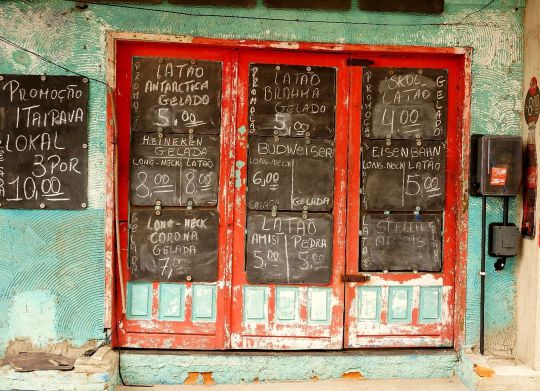 PROMOÇÃO
ITAIPAVA
LOKAL
3 POR
10,00
LATÃO
ANTARCTICA
GELADO
5,00
HEINEKEN
GELADA
LONG-NECK LATÃO
8,00 8,00
LONG-NECK
CORONA
GELADA
7,00
LATÃO
BRAHMA
GELADO
5,00
BUDWEISER
LONG-NECK
6,00
GELADA
LATÃO
AMIST PEDRA
5,00 5,00
GELADO
PROMOÇÃO
SKOL
LATÃO
4,00
GELADO
EISENBAHN
LONG-NECK LATÃO
5,00
STELLA
ARTOIS